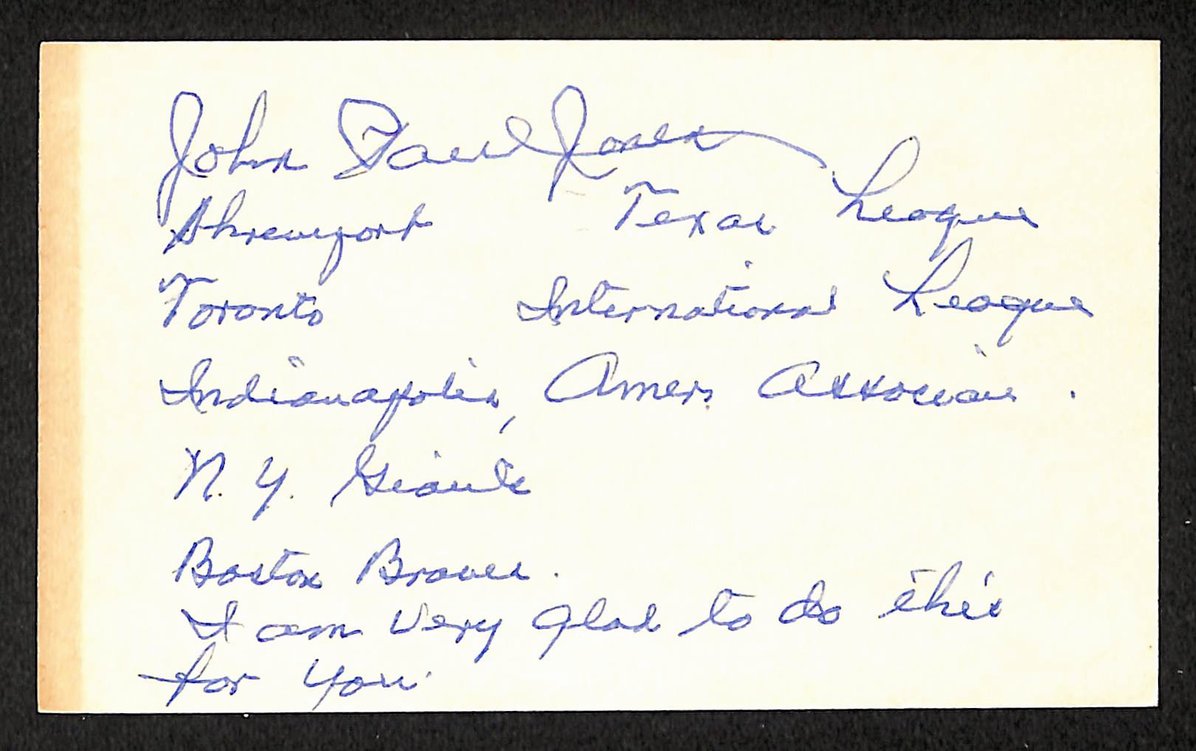 John Paul Jones
Shreveport Texas League
Toronto International League
Indianapolis, Amer. Associan.
N. Y. Giants
Boston Braves.
I am very glad to do this
for you.